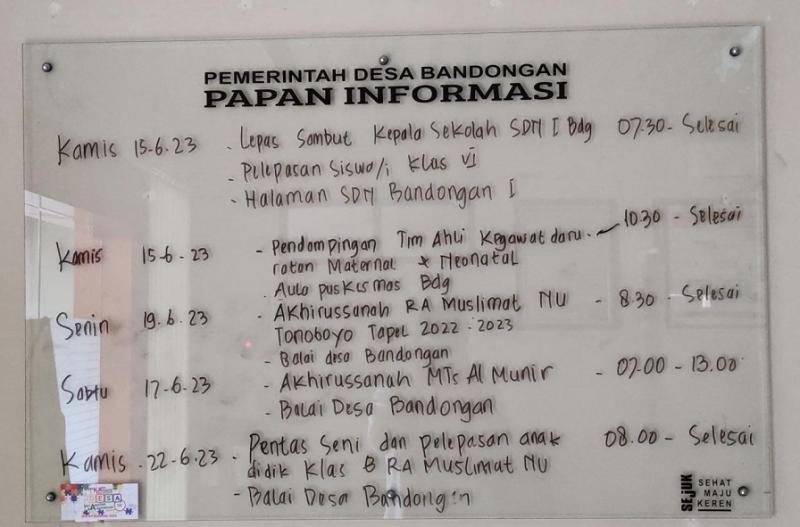 PEMERINTAH DESA BANDONGAN
PAPAN INFORMASI
Kamis 15-6.23 - Lepas Sambut Kepala Sekolah SDN I Bdg 07.30 - Selesai
- Pelepasan Siswa/i Klas VI
- Halaman SDN Bandongan I
Kamis 15-6.23 - Pendampingan Tim Ahli Kegawat daru- 10.30 - Selesai
ratan Maternal & Neonatal
- Aula puskesmas Bdg
Senin 19.6.23 - Akhirussanah RA Muslimat NU - 8.30 - Selesai
Tonoboyo Tapel 2022-2023
- Balai desa Bandongan
Sabtu 17-6.23 - Akhirussanah MTs Al Munir - 07.00 - 13.00
- Balai Desa Bandongan
Kamis .22-6.23 - Pentas Seni dan pelepasan anak 08.00 - Selesai
didik Klas B RA Muslimat NU
- Balai Desa Bandongan
DESA
SEJUK
SEHAT
MAJU
KEREN